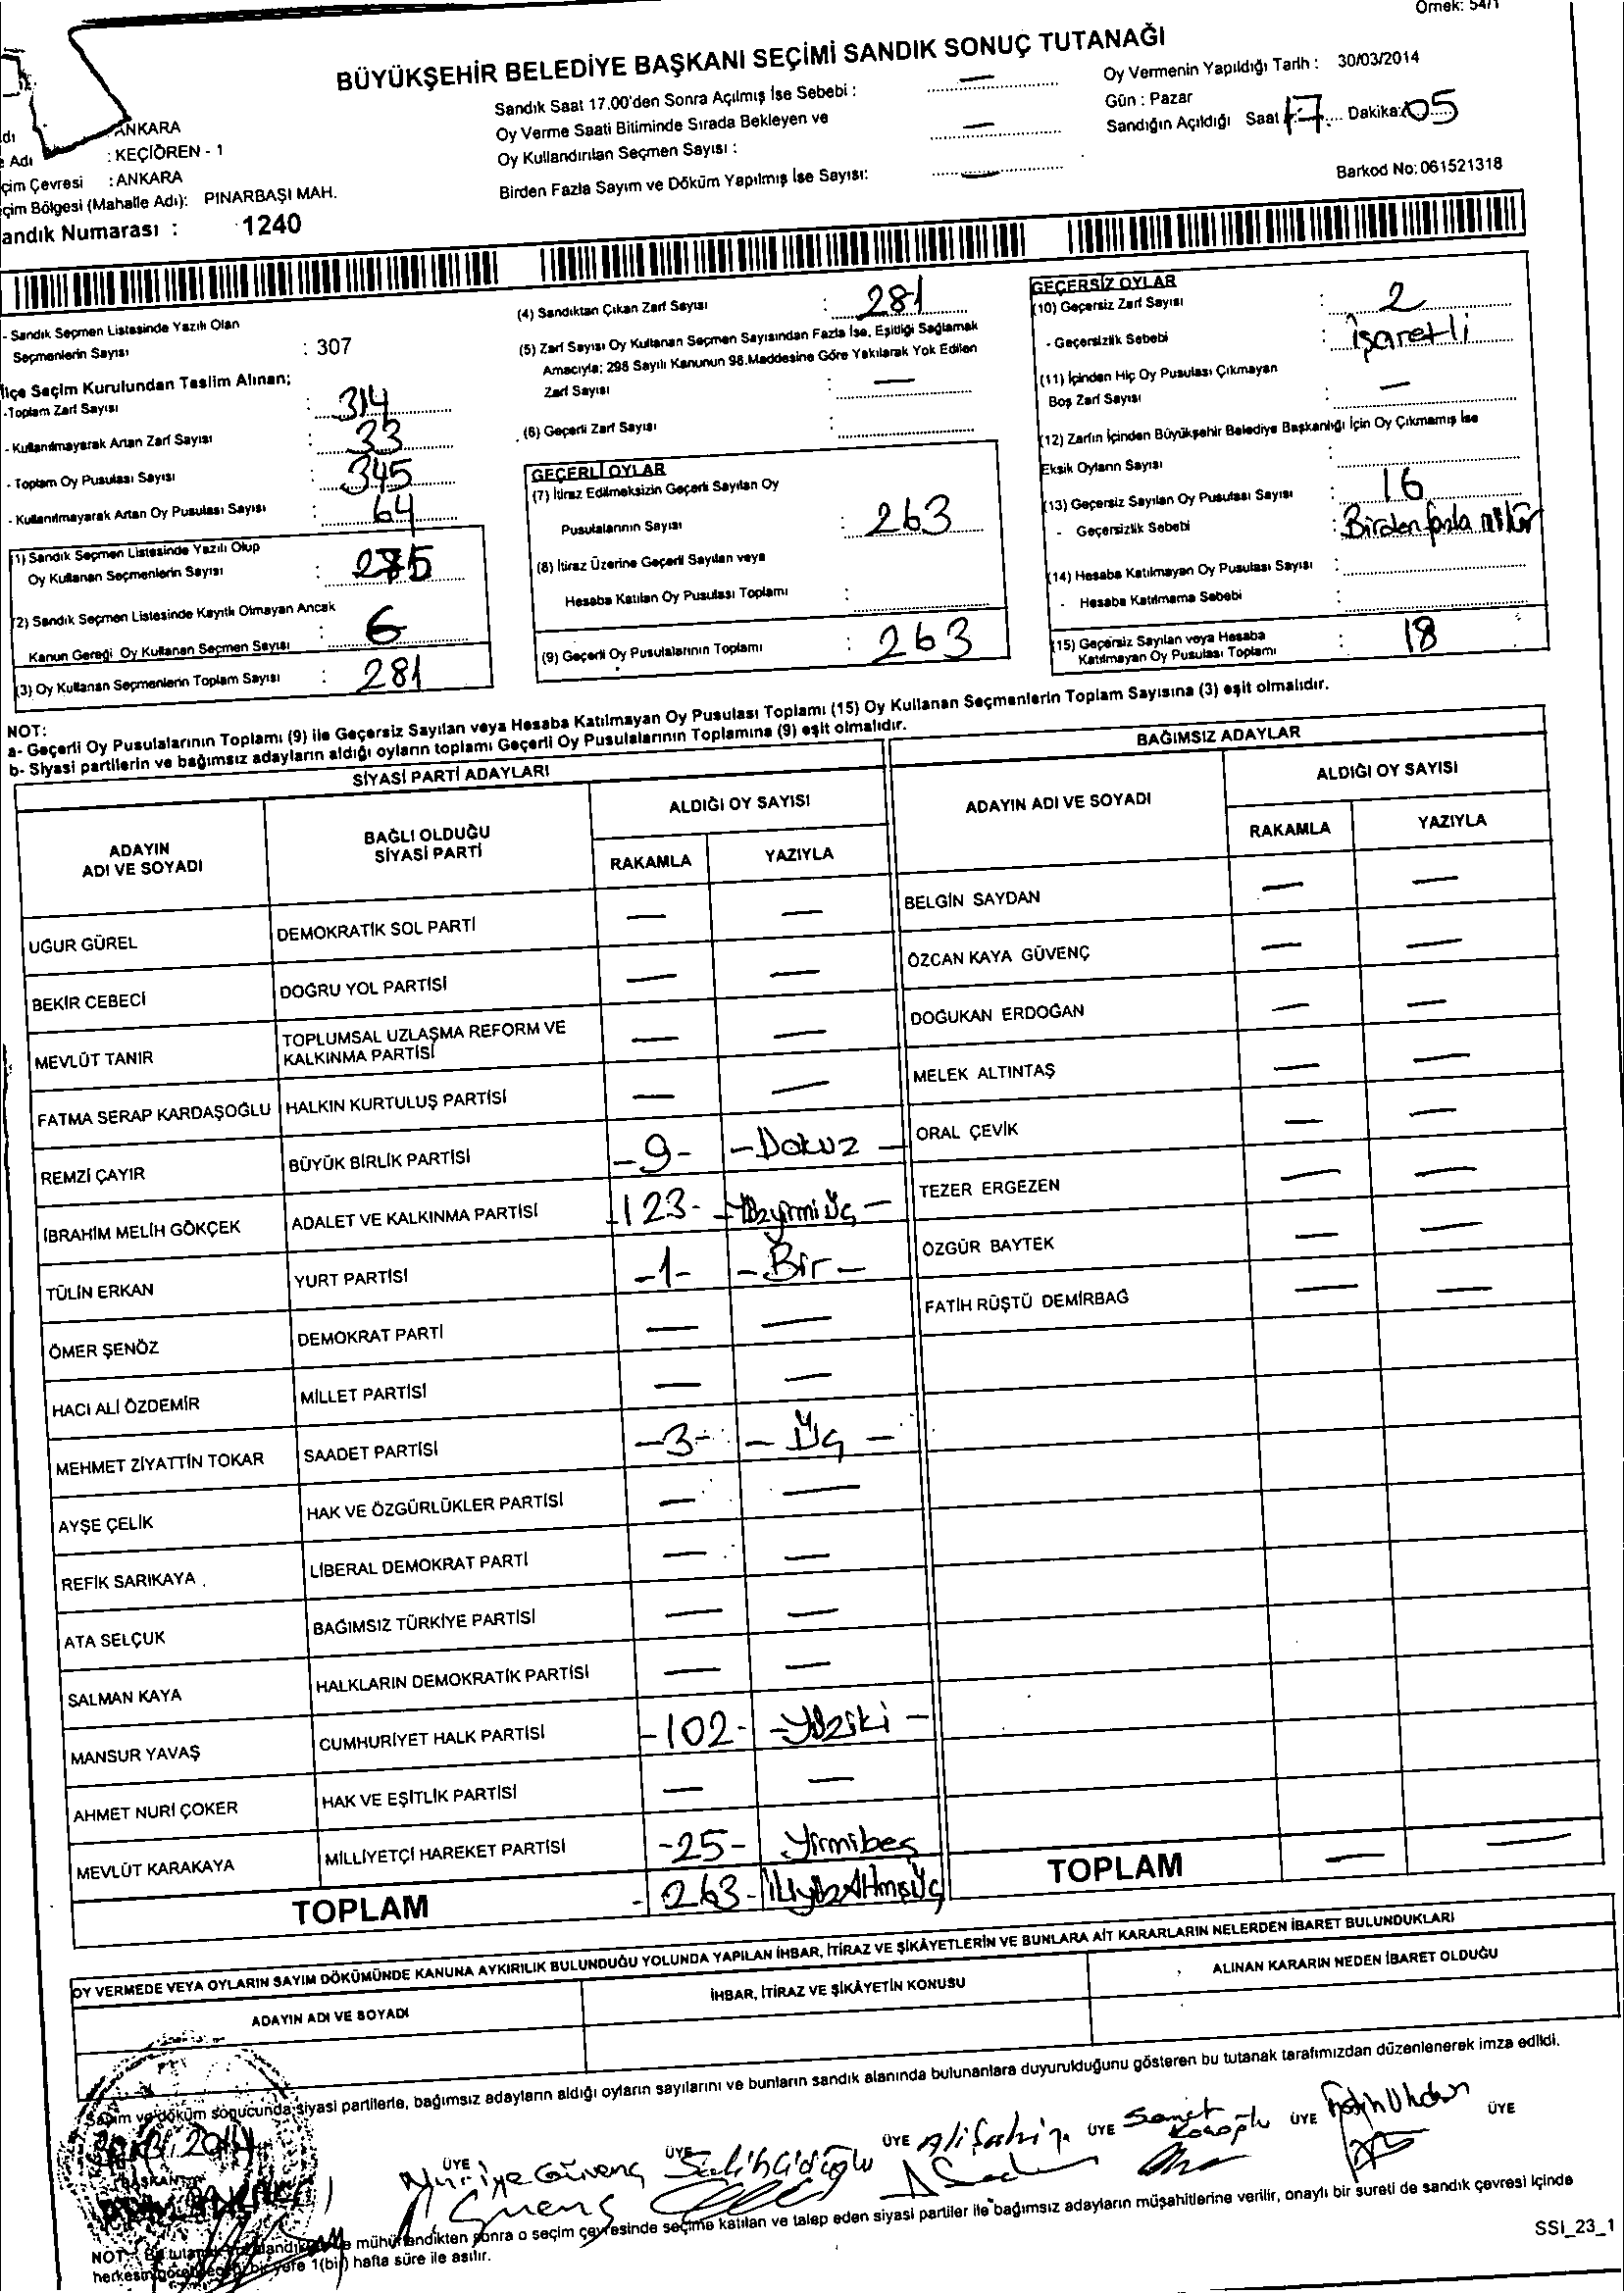 Örnek: 54/1
BÜYÜKŞEHİR BELEDİYE BAŞKANI SEÇİMİ SANDIK SONUÇ TUTANAĞI
Sandık Saat 17.00'den Sonra Açılmış İse Sebebi : —
Oy Verme Saati Bitiminde Sırada Bekleyen ve
Oy Kullandırılan Seçmen Sayısı : —
Birden Fazla Sayım ve Döküm Yapılmış İse Sayısı: —
Oy Vermenin Yapıldığı Tarih : 30/03/2014
Gün : Pazar
Sandığın Açıldığı Saat : 17 Dakika: 05
Barkod No: 061521318
dı : ANKARA
e Adı : KEÇİÖREN - 1
çim Çevresi : ANKARA
çim Bölgesi (Mahalle Adı): PINARBAŞI MAH.
andık Numarası : 1240
- Sandık Seçmen Listesinde Yazılı Olan
Seçmenlerin Sayısı : 307
İlçe Seçim Kurulundan Teslim Alınan;
-Toplam Zarf Sayısı : 314
- Kullanılmayarak Artan Zarf Sayısı : 33
- Toplam Oy Pusulası Sayısı : 345
- Kullanılmayarak Artan Oy Pusulası Sayısı : 64
(1) Sandık Seçmen Listesinde Yazılı Olup
Oy Kullanan Seçmenlerin Sayısı : 275
(2) Sandık Seçmen Listesinde Kayıtlı Olmayan Ancak
Kanun Gereği Oy Kullanan Seçmen Sayısı : 6
(3) Oy Kullanan Seçmenlerin Toplam Sayısı : 281
(4) Sandıktan Çıkan Zarf Sayısı : 281
(5) Zarf Sayısı Oy Kullanan Seçmen Sayısından Fazla İse, Eşitliği Sağlamak
Amacıyla; 298 Sayılı Kanunun 98.Maddesine Göre Yakılarak Yok Edilen
Zarf Sayısı : —
(6) Geçerli Zarf Sayısı :
GEÇERLİ OYLAR
(7) İtiraz Edilmeksizin Geçerli Sayılan Oy
Pusulalarının Sayısı : 263
(8) İtiraz Üzerine Geçerli Sayılan veya
Hesaba Katılan Oy Pusulası Toplamı :
(9) Geçerli Oy Pusulalarının Toplamı : 263
GEÇERSİZ OYLAR
(10) Geçersiz Zarf Sayısı : 2
- Geçersizlik Sebebi : İşaretli
(11) İçinden Hiç Oy Pusulası Çıkmayan
Boş Zarf Sayısı : —
(12) Zarfın İçinden Büyükşehir Belediye Başkanlığı İçin Oy Çıkmamış İse
Eksik Oyların Sayısı :
(13) Geçersiz Sayılan Oy Pusulası Sayısı : 16
- Geçersizlik Sebebi : Birden fazla mühür
(14) Hesaba Katılmayan Oy Pusulası Sayısı :
- Hesaba Katılmama Sebebi :
(15) Geçersiz Sayılan veya Hesaba
Katılmayan Oy Pusulası Toplamı : 18
NOT:
a- Geçerli Oy Pusulalarının Toplamı (9) ile Geçersiz Sayılan veya Hesaba Katılmayan Oy Pusulası Toplamı (15) Oy Kullanan Seçmenlerin Toplam Sayısına (3) eşit olmalıdır.
b- Siyasi partilerin ve bağımsız adayların aldığı oyların toplamı Geçerli Oy Pusulalarının Toplamına (9) eşit olmalıdır.
SİYASİ PARTİ ADAYLARI
ADAYIN ADI VE SOYADI BAĞLI OLDUĞU SİYASİ PARTİ ALDIĞI OY SAYISI
RAKAMLA YAZIYLA
UĞUR GÜREL DEMOKRATİK SOL PARTİ — —
BEKİR CEBECİ DOĞRU YOL PARTİSİ — —
MEVLÜT TANIR TOPLUMSAL UZLAŞMA REFORM VE KALKINMA PARTİSİ — —
FATMA SERAP KARDAŞOĞLU HALKIN KURTULUŞ PARTİSİ — —
REMZİ ÇAYIR BÜYÜK BİRLİK PARTİSİ -9- -Dokuz-
İBRAHİM MELİH GÖKÇEK ADALET VE KALKINMA PARTİSİ -123- -Yüzyirmiüç-
TÜLİN ERKAN YURT PARTİSİ -1- -Bir-
ÖMER ŞENÖZ DEMOKRAT PARTİ — —
HACI ALİ ÖZDEMİR MİLLET PARTİSİ — —
MEHMET ZİYATTİN TOKAR SAADET PARTİSİ -3- -Üç-
AYŞE ÇELİK HAK VE ÖZGÜRLÜKLER PARTİSİ — —
REFİK SARIKAYA LİBERAL DEMOKRAT PARTİ — —
ATA SELÇUK BAĞIMSIZ TÜRKİYE PARTİSİ — —
SALMAN KAYA HALKLARIN DEMOKRATİK PARTİSİ — —
MANSUR YAVAŞ CUMHURİYET HALK PARTİSİ -102- -Yüziki-
AHMET NURİ ÇOKER HAK VE EŞİTLİK PARTİSİ — —
MEVLÜT KARAKAYA MİLLİYETÇİ HAREKET PARTİSİ -25- Yirmibeş
TOPLAM -263- İkiyüzAltmışüç
BAĞIMSIZ ADAYLAR
ADAYIN ADI VE SOYADI ALDIĞI OY SAYISI
RAKAMLA YAZIYLA
BELGİN SAYDAN — —
ÖZCAN KAYA GÜVENÇ — —
DOĞUKAN ERDOĞAN — —
MELEK ALTINTAŞ — —
ORAL ÇEVİK — —
TEZER ERGEZEN — —
ÖZGÜR BAYTEK — —
FATİH RÜŞTÜ DEMİRBAĞ — —
TOPLAM — —
OY VERMEDE VEYA OYLARIN SAYIM DÖKÜMÜNDE KANUNA AYKIRILIK BULUNDUĞU YOLUNDA YAPILAN İHBAR, İTİRAZ VE ŞİKÂYETLERİN VE BUNLARA AİT KARARLARIN NELERDEN İBARET BULUNDUKLARI
ADAYIN ADI VE SOYADI İHBAR, İTİRAZ VE ŞİKÂYETİN KONUSU ALINAN KARARIN NEDEN İBARET OLDUĞU
Sayım ve döküm sonucunda siyasi partilerle, bağımsız adayların aldığı oyların sayılarını ve bunların sandık alanında bulunanlara duyurulduğunu gösteren bu tutanak tarafımızdan düzenlenerek imza edildi.
BAŞKAN ÜYE ÜYE ÜYE ÜYE ÜYE ÜYE
Nuriye Güvenç Ali Şahin
mühürlendikten sonra o seçim çevresinde seçime katılan ve talep eden siyasi partiler ile bağımsız adayların müşahitlerine verilir, onaylı bir sureti de sandık çevresi içinde
1(bir) hafta süre ile asılır.
SSI_23_1